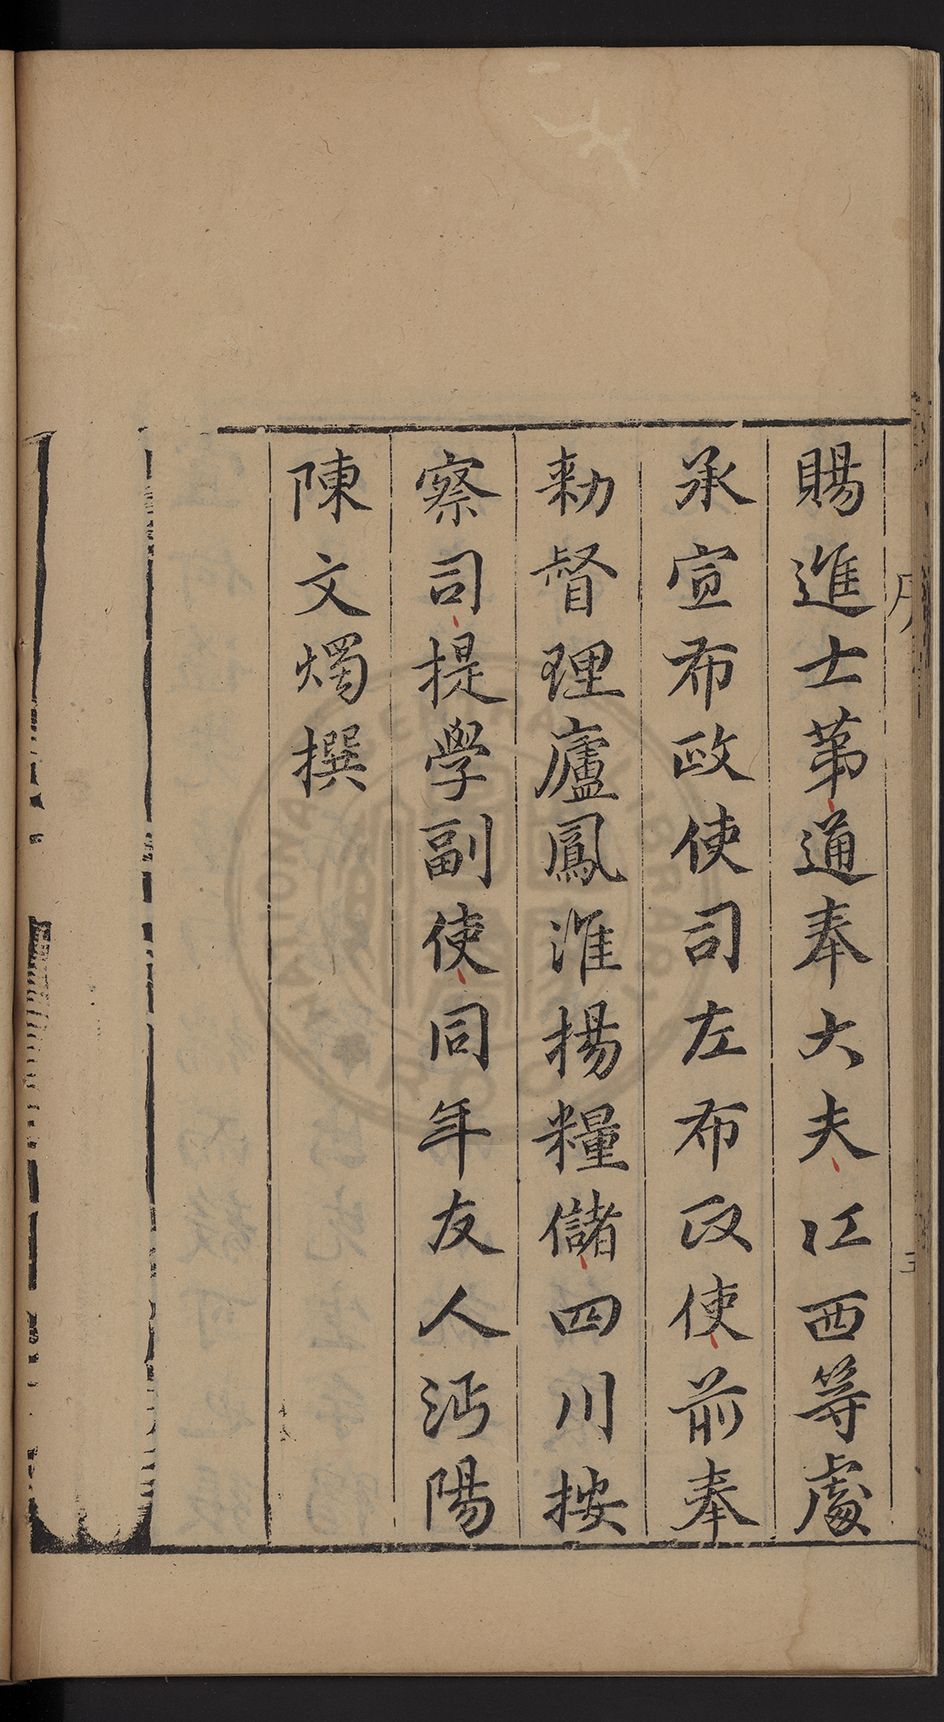 賜進士第通奉大夫江西等處
承宣布政使司左布政使前奉
勑督理廬鳳淮揚糧儲四川按
察司提學副使同年友人沔陽
陳文燭撰